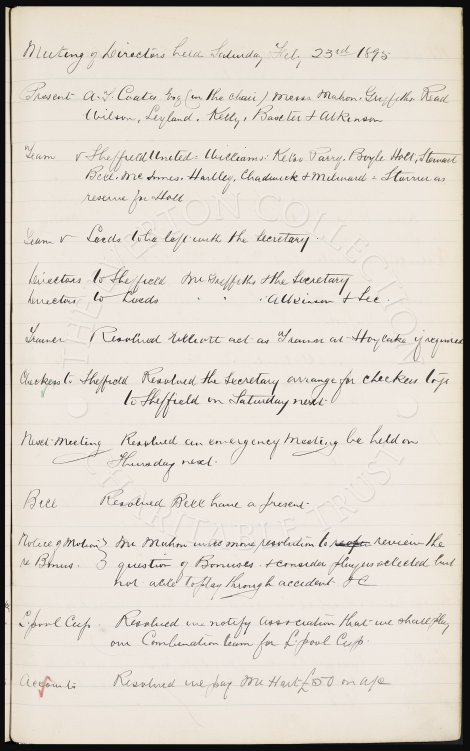 Meeting of Directors held Saturday Feb, 23rd 1895
Present A. T Coates Esq (in the chair) Messrs Mahon, Griffiths Read
Wilson, Leyland, Kelly, Baxter & Atkinson
Team v Sheffield United: Williams: Kelso Parry, Boyle Holt, Stewart
Bell, McInnes, Hartley, Chadwick & Milward = Storrier as
reserve for Holt
Team v Leeds to be left with the Secretary.
Directors to Sheffield Mr Griffiths & the Secretary
Directors to Leeds " " Atkinson & Sec.
Trainer Resolved Elliott act as Trainer at Hoylake if required
Checkers to Sheffield Resolved the Secretary arrange for checkers to go
to Sheffield on Saturday next
Next Meeting Resolved an emergency meeting be held on
Thursday next.
Bell Resolved Bell have a present
Notice of Motion } Mr Mahon will move resolution to review the
re Bonus. } question of Bonuses. & consider players selected but
not able to play through accident &c
L'pool Cup. Resolved we notify Association that we shall play
our Combination team for L'pool Cup.
Accounts Resolved we pay Mr Hart £50 on a/c
THE EVERTON COLLECTION
CHARITABLE TRUST